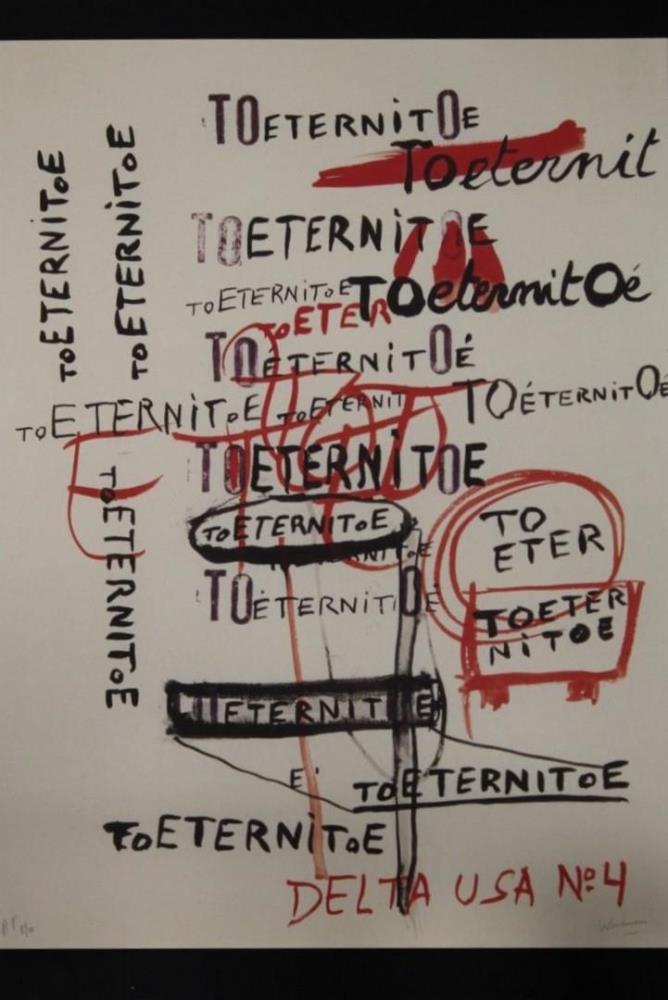 TOETERNiTOE
Toeternit
TOETERNiTOE
TOETERNITOE
TOETERNiTOE
TOETERNITOE
TOeternitOé
TOETER
TOÉTERNiTOÉ
TOETERNiTOE
TOETERNIT
TOÉTERNITOÉ
TOETERNiTOE
TOETERNITOE
TOETERNITOE
TO
ETER
TOETER
NITOE
TOÉTERNITOÉ
ETERNIT E
E'
TOETERNITOE
TOETERNITOE
DELTA USA Nº4